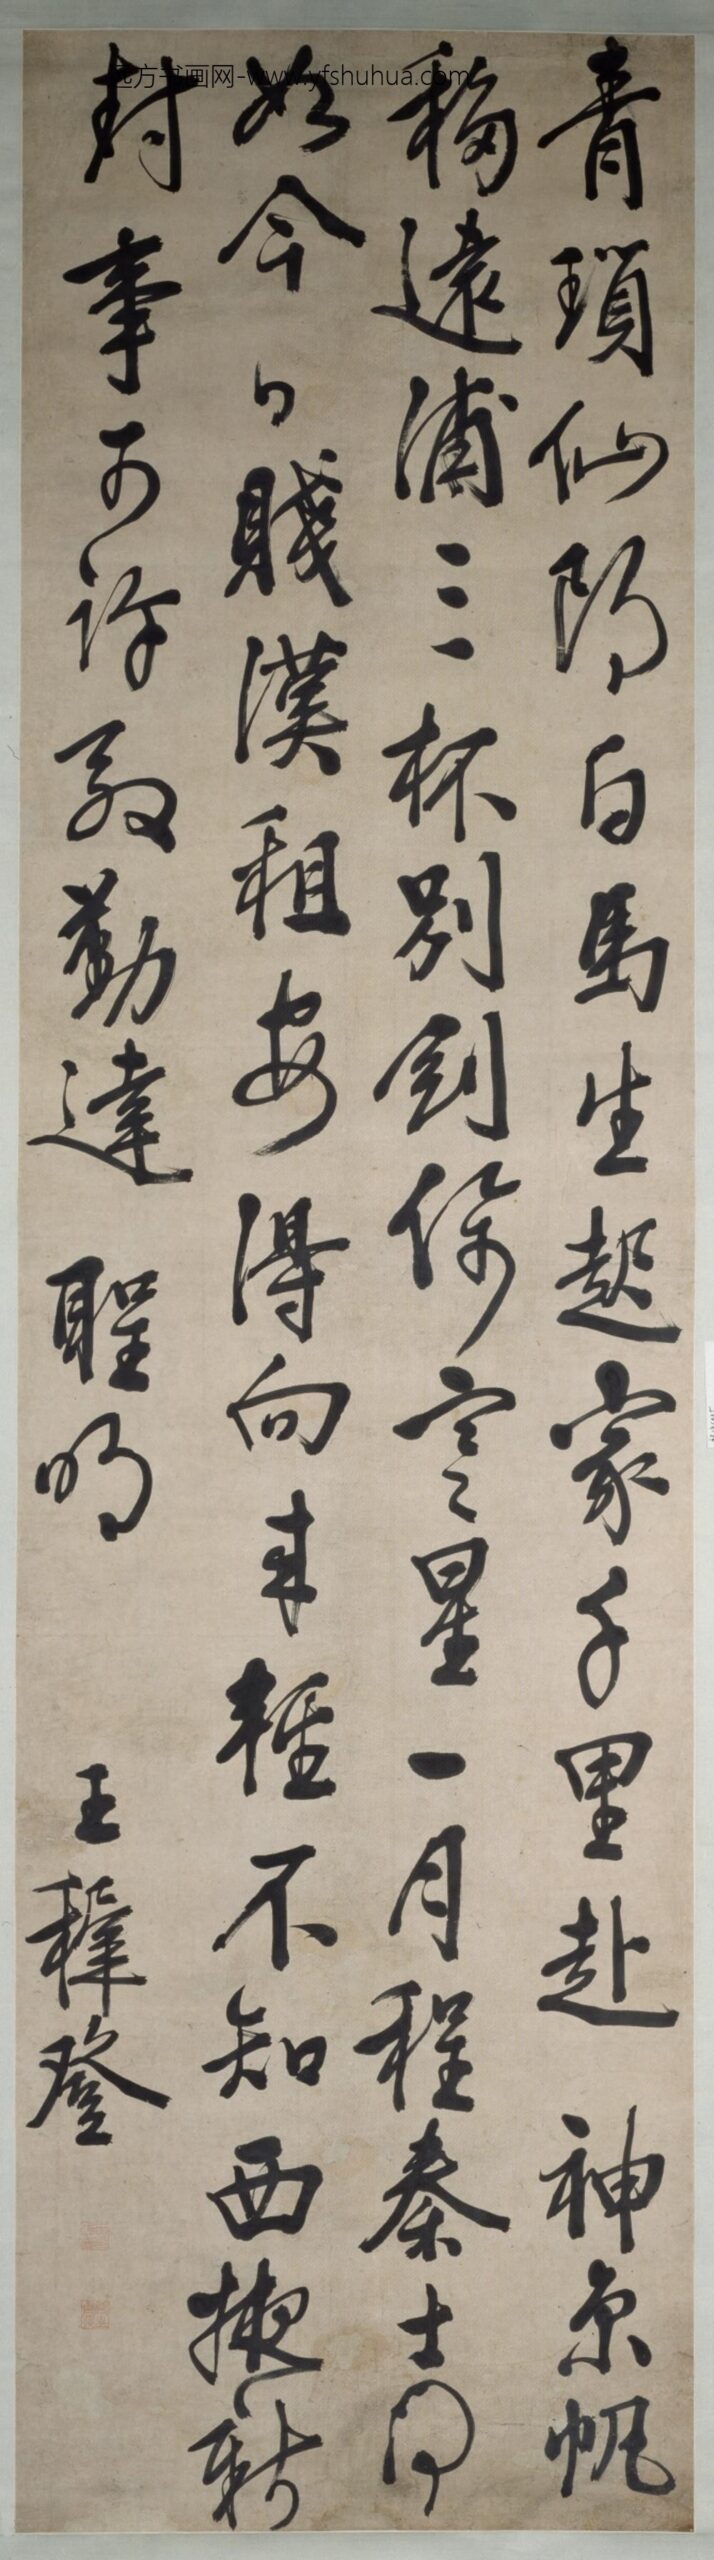 远方书画网-www.yfshuhua.com
青瑣仙郎白馬生起家千里赴 神京帆
移遠浦三杯別劍倚寒星一月程秦士何
如今日賤漢租安得向來輕不知西掖新
封事可許殷勤達 聖明 王穉登